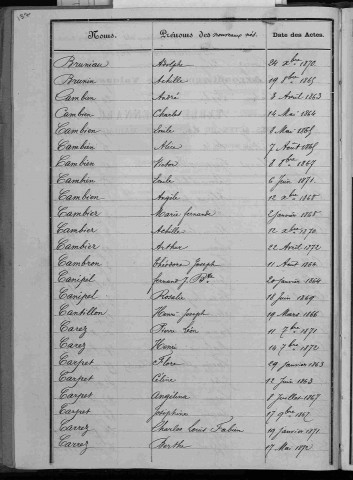 Noms. Prénoms des nouveaux nés. Date des Actes.
Bruniau Adolphe 24 Xbre 1870.
Brunin Achille 19 8bre 1865
Cambien André 3 Août 1863
Cambien Charles 14 Mai 1864
Cambien Emile 8 Mai 1865
Cambien Alice 7 Août 1865
Cambien Victor 8 8bre 1867
Cambien Emile 6 Juin 1871.
Cambien Angèle 12 Xbre 1868
Cambier Marie fernande 2 Janvier 1868
Cambier Achille 12 Xbre 1870.
Cambier Arthur 22 Avril 1872
Cambron Théodore Joseph 11 Août 1864
Canipel fernand J. Bte 20 Janvier 1864
Canipel Rosalie 18 Juin 1869
Cantillon Henri Joseph 19 Mars 1866
Carez Pierre Léon 11 7bre 1871
Carez Henri 14 7bre 1872
Carpet Flore 29 Janvier 1863
Carpet Céline 12 Juin 1863
Carpet Angelina 8 Juillet 1867
Carpet Joséphine 17 9bre 1867
Carrez Charles Louis Fabien 19 Janvier 1871.
Carrez Berthe 17 Mai 1872